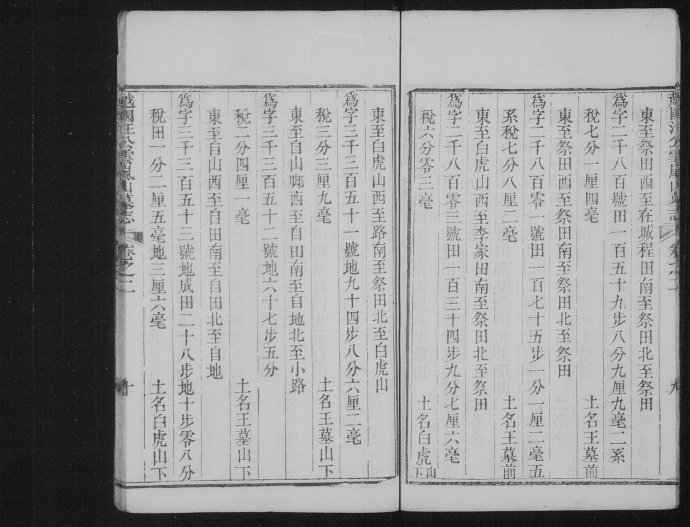 東至祭田西至在城程田南至祭田北至祭田
爲字二千八百號田一百五十九步八分九厘九毫二系
稅七分一厘四毫 土名王墓前
東至祭田西至祭田南至祭田北至祭田
爲字二千八百零一號田一百七十五步一分一厘二毫五
系稅七分八厘二毫 土名王墓前
東至白虎山西至李家田南至祭田北至祭田
爲字二千八百零三號田一百三十四步九分七厘六毫
稅六分零三毫 土名白虎山下
九
東至白虎山西至路南至祭田北至白虎山
爲字三千三百五十一號地九十四步八分六厘二毫
稅三分三厘九毫 土名王墓山下
東至自山𨺗西至自田南至自地北至小路
爲字三千三百五十二號地六十七步五分
稅二分四厘一毫 土名王墓山下
東至自山西至自田南至自田北至自地
爲字三千三百五十三號地成田二十八步地十步零八分
稅田一分一厘五毫地三厘六毫 土名白虎山下
越國汪公雲嵐山墓志 卷之二 十